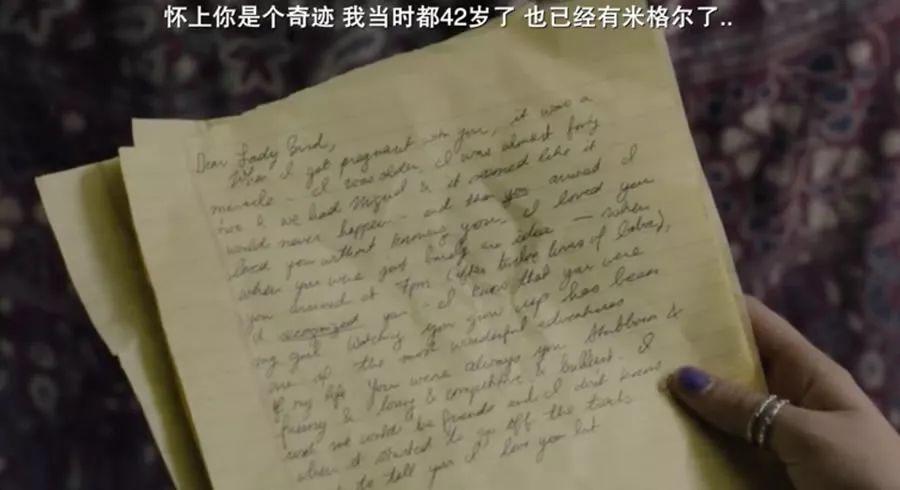 怀上你是个奇迹 我当时都42岁了 也已经有米格尔了..
Dear Lady Bird,
When I got pregnant with you, it was a
miracle - I was older, I was almost forty
two & we had Miguel & it seemed like it
would never happen - and then you arrived I
loved you without knowing you. I loved you
when you were just barely an idea — when
you arrived at 7pm (after twelve hours of labor),
I'd recognized you - I knew that you were
my girl. Watching you grow up has been
one of the most wonderful adventures
of my life. You were always you. Stubborn &
funny & loving & competitive &
wish we would be friends and I don't know
when it started to go off the tracks
to tell you I love you but